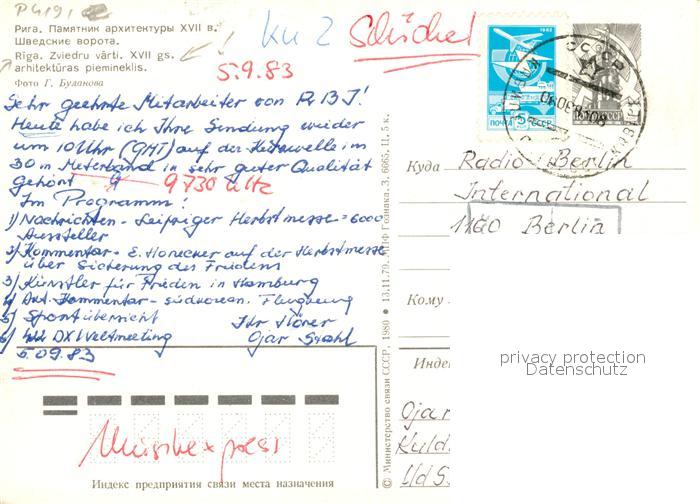 P4191
Рига. Памятник архитектуры XVII в.
Шведские ворота.
Rīga. Zviedru vārti. XVII gs.
arhitektūras piemineklis.
Фото Г. Буланова
5.9.83
Sehr geehrte Mitarbeiter von RBI!
Heute habe ich Ihre Sendung wieder
um 10 Uhr (GMT) auf der
30 m Meterband in sehr guter Qualität
gehört
9730
Im Programm:
1) Nachrichten - Leipziger Herbstmesse = 6000
Aussteller
2) Kommentar - E. Honecker auf der Herbstmesse
über Sicherung des Friedens
3) Künstler für Frieden in Hamburg
4) Akt. Kommentar - südkorean. Flugzeug
5) Sportübersicht
Ihr Hörer
DX Weltmeeting
Ojar
5.09.83
Индекс предприятия связи места назначения
© Министерство связи СССР, 1980 • 13.11.79. МПФ Гознака. З. 6665. Ц. 5 к.
1982
ПОЧТА
СССР
Куда
Radio Berlin
International
1160 Berlin
Кому
Инде
privacy protection
Datenschutz
Ojar
Kuld
UdS